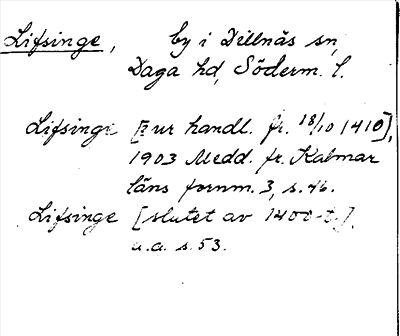 Lifsinge, by i Dillnäs sn,
Daga hd, Söderm. l.
Lifsinge [ur handl. fr. 18/10 1410],
1903 Medd. fr. Kalmar
läns fornm. 3, s. 46.
Lifsinge [slutet av 1400-t.],
a.a. s. 53.